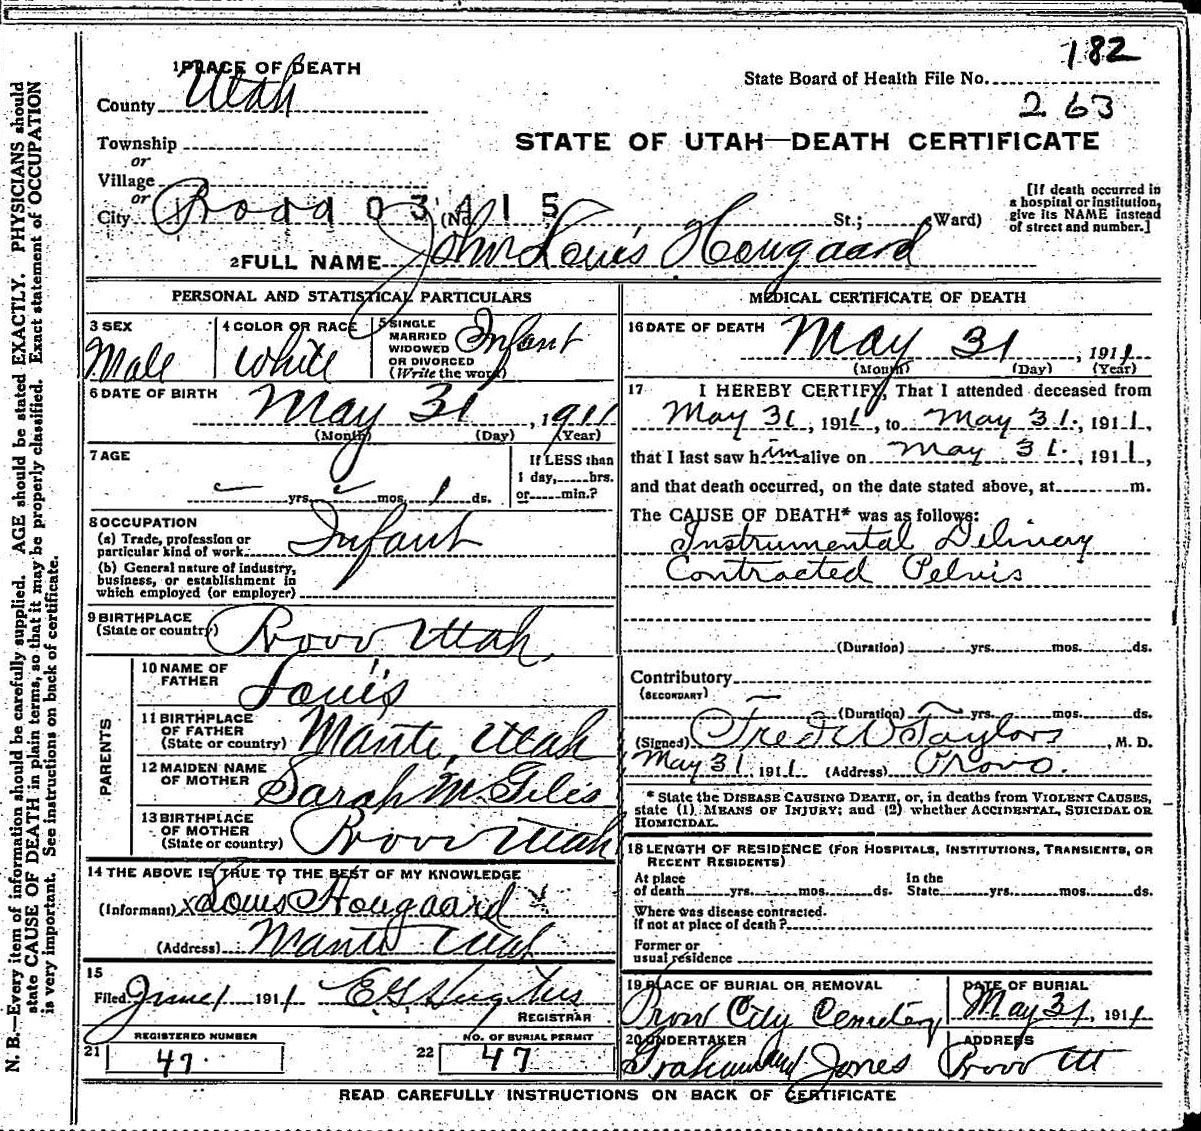 182
State Board of Health File No.
263
1 PLACE OF DEATH
County Utah
STATE OF UTAH—DEATH CERTIFICATE
Township
or
Village
or
City Provo 1103415 (No. St.; Ward)
[If death occurred in a hospital or institution, give its NAME instead of street and number.]
2 FULL NAME John Louis Hougaard
PERSONAL AND STATISTICAL PARTICULARS
3 SEX Male
4 COLOR OR RACE White
5 SINGLE MARRIED WIDOWED OR DIVORCED (Write the word) Infant
6 DATE OF BIRTH
May 31, 1911
(Month) (Day) (Year)
7 AGE
yrs. mos. 1 ds.
If LESS than 1 day, hrs. or min.?
8 OCCUPATION
(a) Trade, profession or particular kind of work Infant
(b) General nature of industry, business, or establishment in which employed (or employer)
9 BIRTHPLACE (State or country) Provo Utah,
PARENTS
10 NAME OF FATHER Louis
11 BIRTHPLACE OF FATHER (State or country) Manti, Utah
12 MAIDEN NAME OF MOTHER Sarah M Giles
13 BIRTHPLACE OF MOTHER (State or country) Provo Utah
14 THE ABOVE IS TRUE TO THE BEST OF MY KNOWLEDGE
(Informant) x Louis Hougaard
(Address) Manti Utah
15
Filed June 1 1911
REGISTRAR
REGISTERED NUMBER
21 47.
NO. OF BURIAL PERMIT
22 47
MEDICAL CERTIFICATE OF DEATH
16 DATE OF DEATH
May 31, 1911
(Month) (Day) (Year)
17 I HEREBY CERTIFY, That I attended deceased from
May 31, 1911, to May 31., 1911,
that I last saw him alive on May 31., 1911,
and that death occurred, on the date stated above, at m.
The CAUSE OF DEATH* was as follows:
Instrumental Delivery
Contracted Pelvis
(Duration) yrs. mos. ds.
Contributory
(SECONDARY)
(Duration) yrs. mos. ds.
(Signed) Fred W Taylor, M. D.
May 31 1911 (Address) Provo.
* State the DISEASE CAUSING DEATH, or, in deaths from VIOLENT CAUSES, state (1) MEANS OF INJURY; and (2) whether ACCIDENTAL, SUICIDAL OR HOMICIDAL.
18 LENGTH OF RESIDENCE (FOR HOSPITALS, INSTITUTIONS, TRANSIENTS, OR RECENT RESIDENTS)
At place of death yrs. mos. ds. In the State yrs. mos. ds.
Where was disease contracted.
If not at place of death?
Former or usual residence
19 PLACE OF BURIAL OR REMOVAL
Provo City Cemetery
DATE OF BURIAL
May 31, 1911
20 UNDERTAKER
Graham and Jones
ADDRESS
Provo Ut
READ CAREFULLY INSTRUCTIONS ON BACK OF CERTIFICATE
N. B.—Every item of information should be carefully supplied. AGE should be stated EXACTLY. PHYSICIANS should
state CAUSE OF DEATH in plain terms, so that it may be properly classified. Exact statement of OCCUPATION
is very important. See instructions on back of certificate.